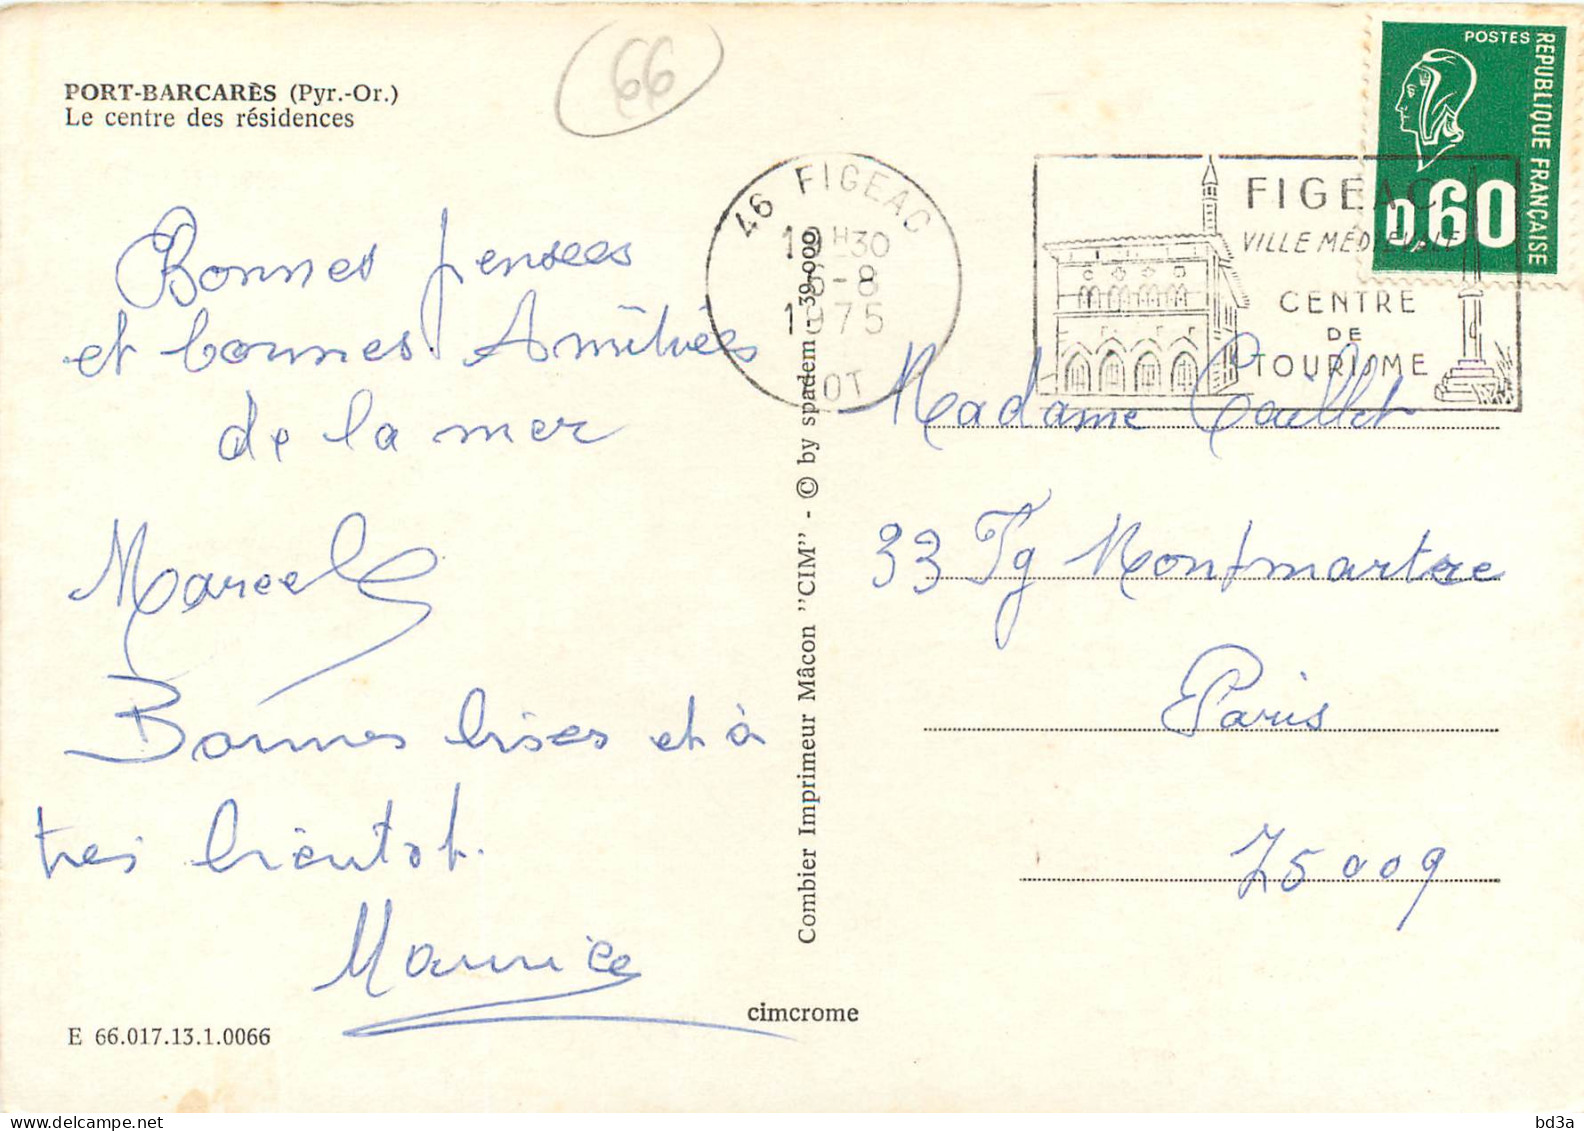 PORT-BARCARÈS (Pyr.-Or.)
Le centre des résidences
66
Bonnes pensées
et bonnes Amitiées
de la mer
Marcel
Bonnes bises et à
tres bientot.
Maurice
E 66.017.13.1.0066
cimcrome
Combier Imprimeur Mâcon "CIM" - © by spadem - 39.000
46 FIGEAC
19H30
6-8
1975
LOT
FIGEAC
VILLE MÉDIÉVALE
CENTRE
DE
TOURISME
POSTES
REPUBLIQUE FRANÇAISE
0,60
Madame Caillet
33 Fg Montmartre
Paris
75009
bd3a